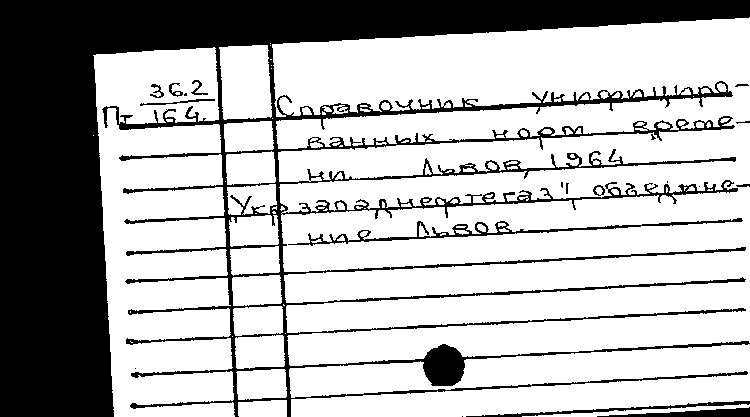 36.2
Пт 164.
Справочник унифициро-
ванных норм време-
ни. Львов, 1964
"Укрзападнефтегаз", объедине-
ние Львов.